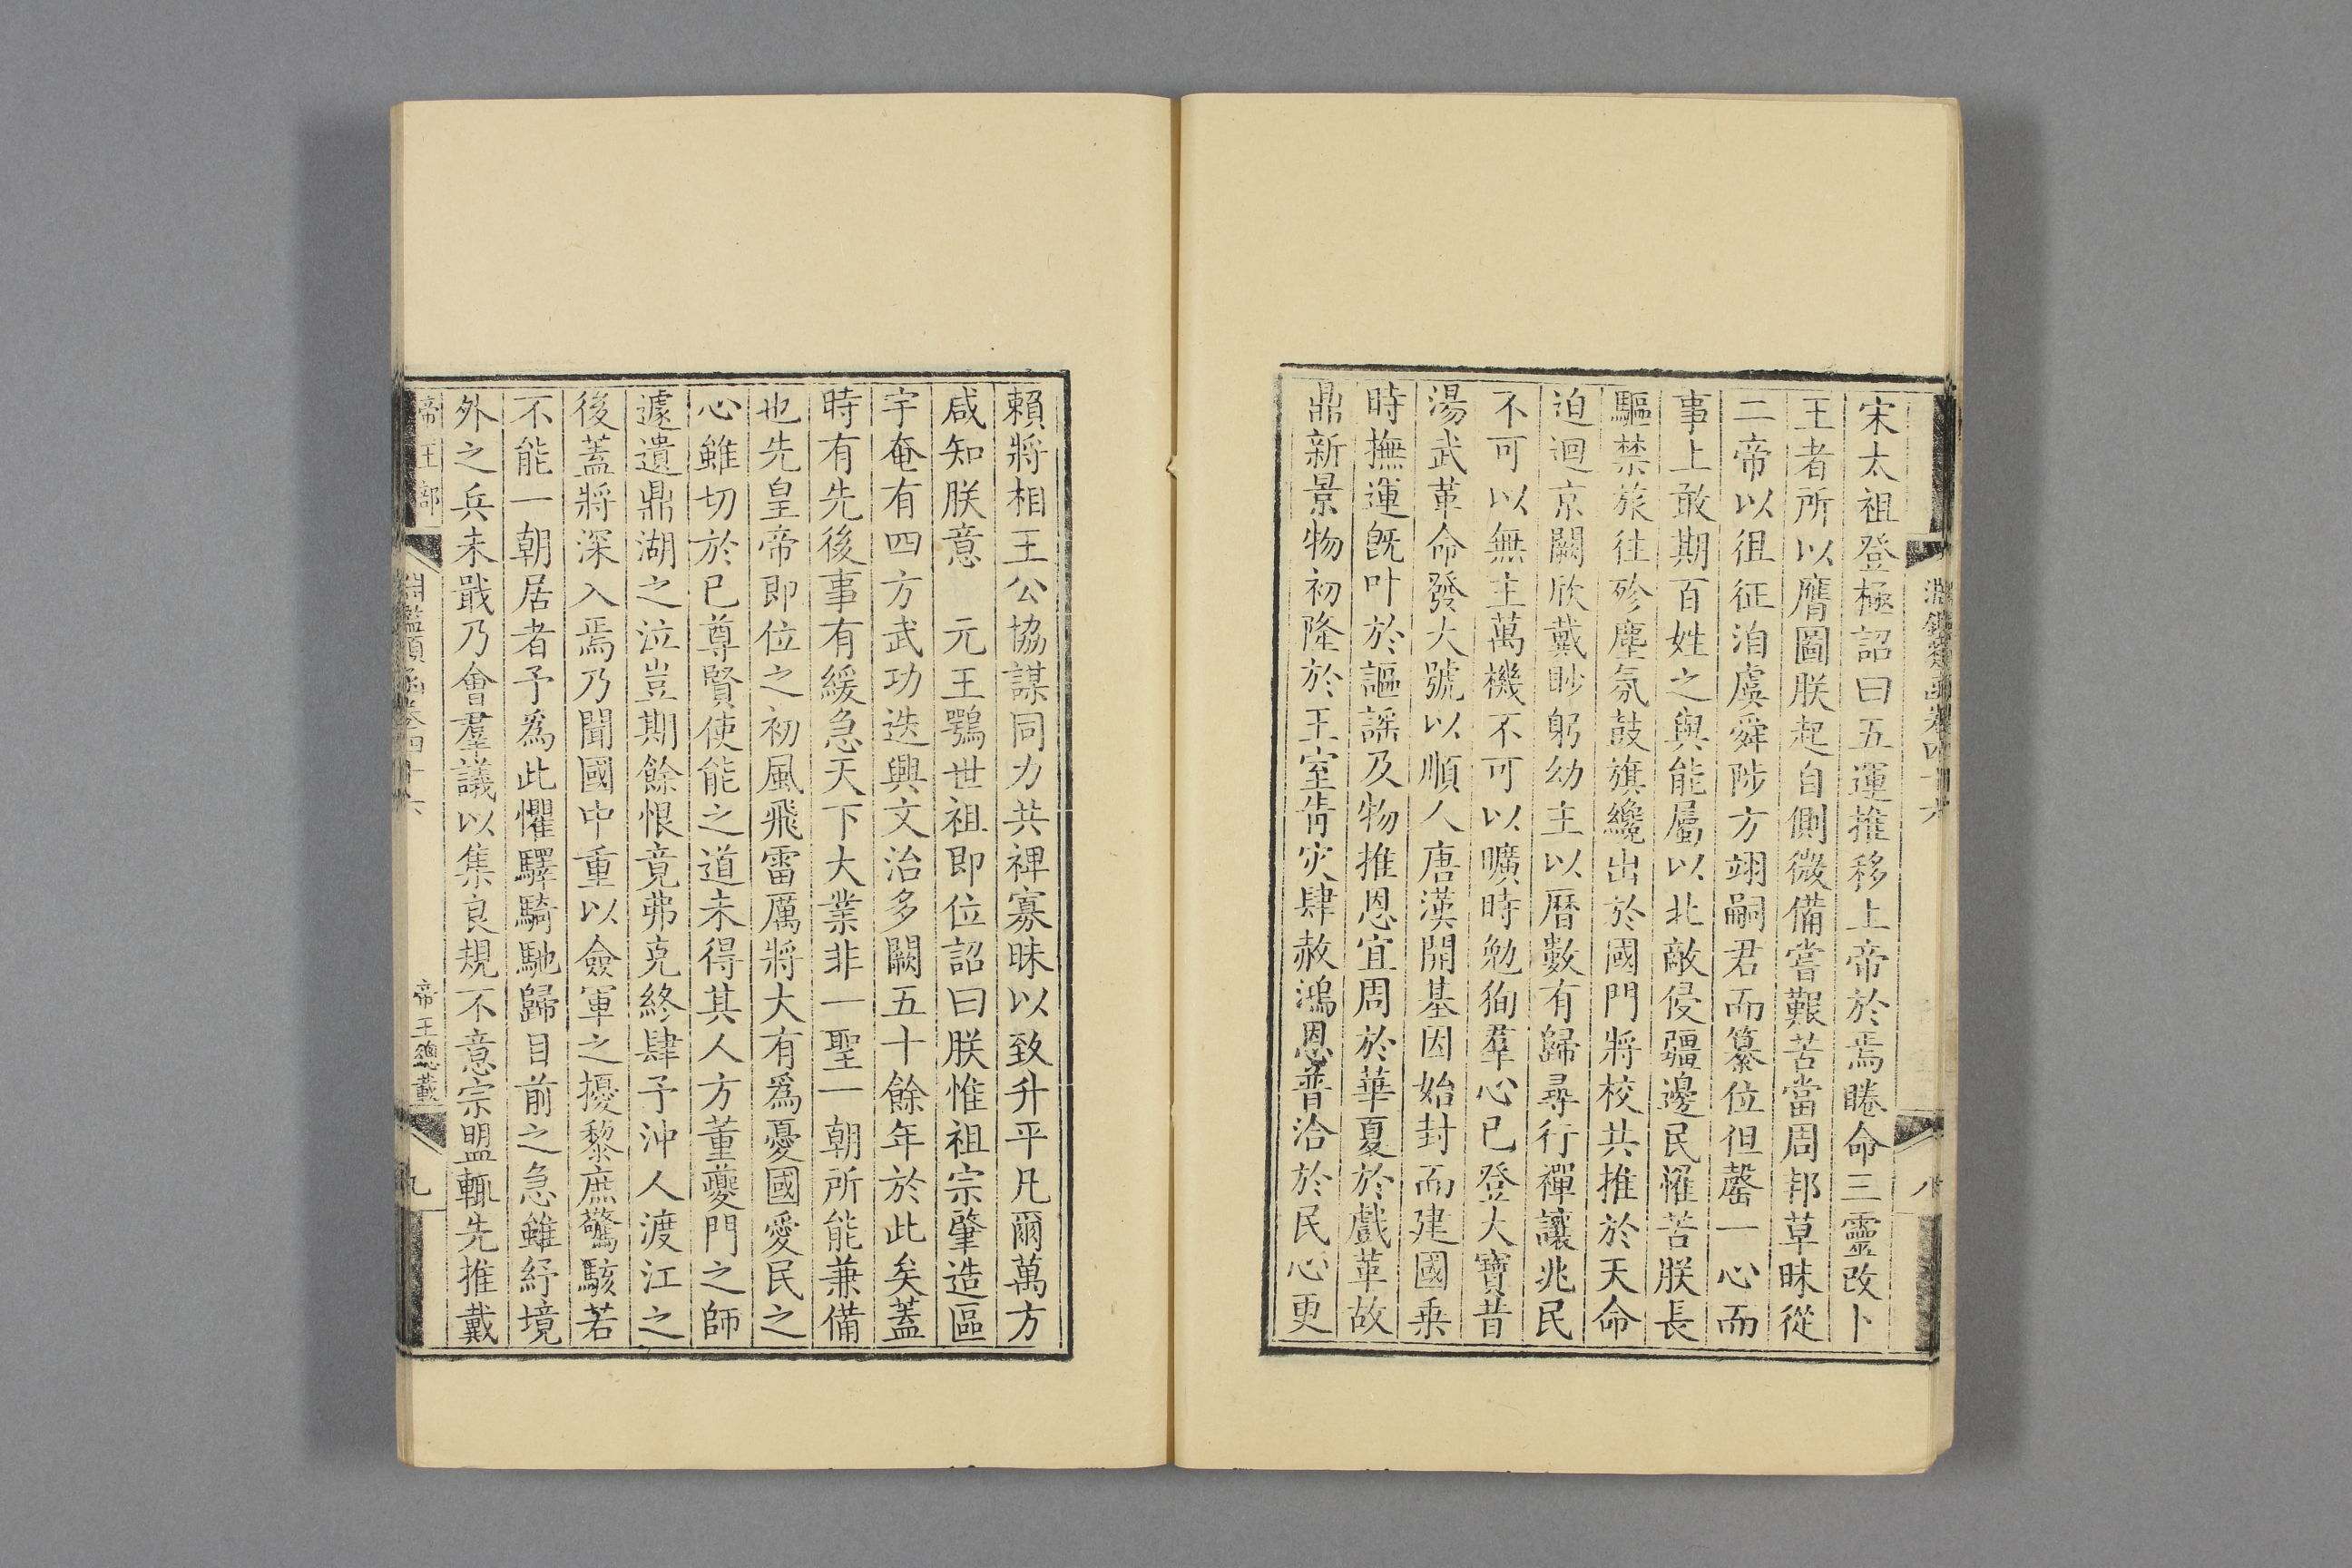 淵鑑類函卷四十六
八
宋太祖登極詔曰五運推移上帝於焉睠命三靈改卜
王者所以膺圖朕起自側微備嘗艱苦當周邦草昧從
二帝以徂征洎虞舜陟方翊嗣君而纂位但罄一心而
事上敢期百姓之與能屬以北敵侵疆邊民罹苦朕長
驅禁旅往殄塵氛鼓旗纔出於國門將校共推於天命
迫迴京闕欣戴眇躬幼主以曆數有歸尋行禪讓兆民
不可以無主萬機不可以曠時勉狥羣心已登大寶昔
湯武革命發大號以順人唐漢開基因始封而建國乗
時撫運旣叶於謳謡及物推恩宜周於華夏於戲革故
鼎新景物初隆於王室眚灾肆赦鴻恩普洽於民心更
賴將相王公協謀同力共裨寡昧以致升平凡爾萬方
咸知朕意　元王鶚世祖即位詔曰朕惟祖宗肇造區
宇奄有四方武功迭興文治多闕五十餘年於此矣蓋
時有先後事有緩急天下大業非一聖一朝所能兼備
也先皇帝即位之初風飛雷厲將大有爲憂國愛民之
心雖切於已尊賢使能之道未得其人方董夔門之師
遽遺鼎湖之泣豈期餘恨竟弗克終肆予沖人渡江之
後蓋將深入焉乃聞國中重以僉軍之擾黎庶驚駭若
不能一朝居者予爲此懼驛騎馳歸目前之急雖紓境
外之兵未戢乃會羣議以集良規不意宗盟輒先推戴
帝王部
淵鑑類函卷四十六
帝王總載
九